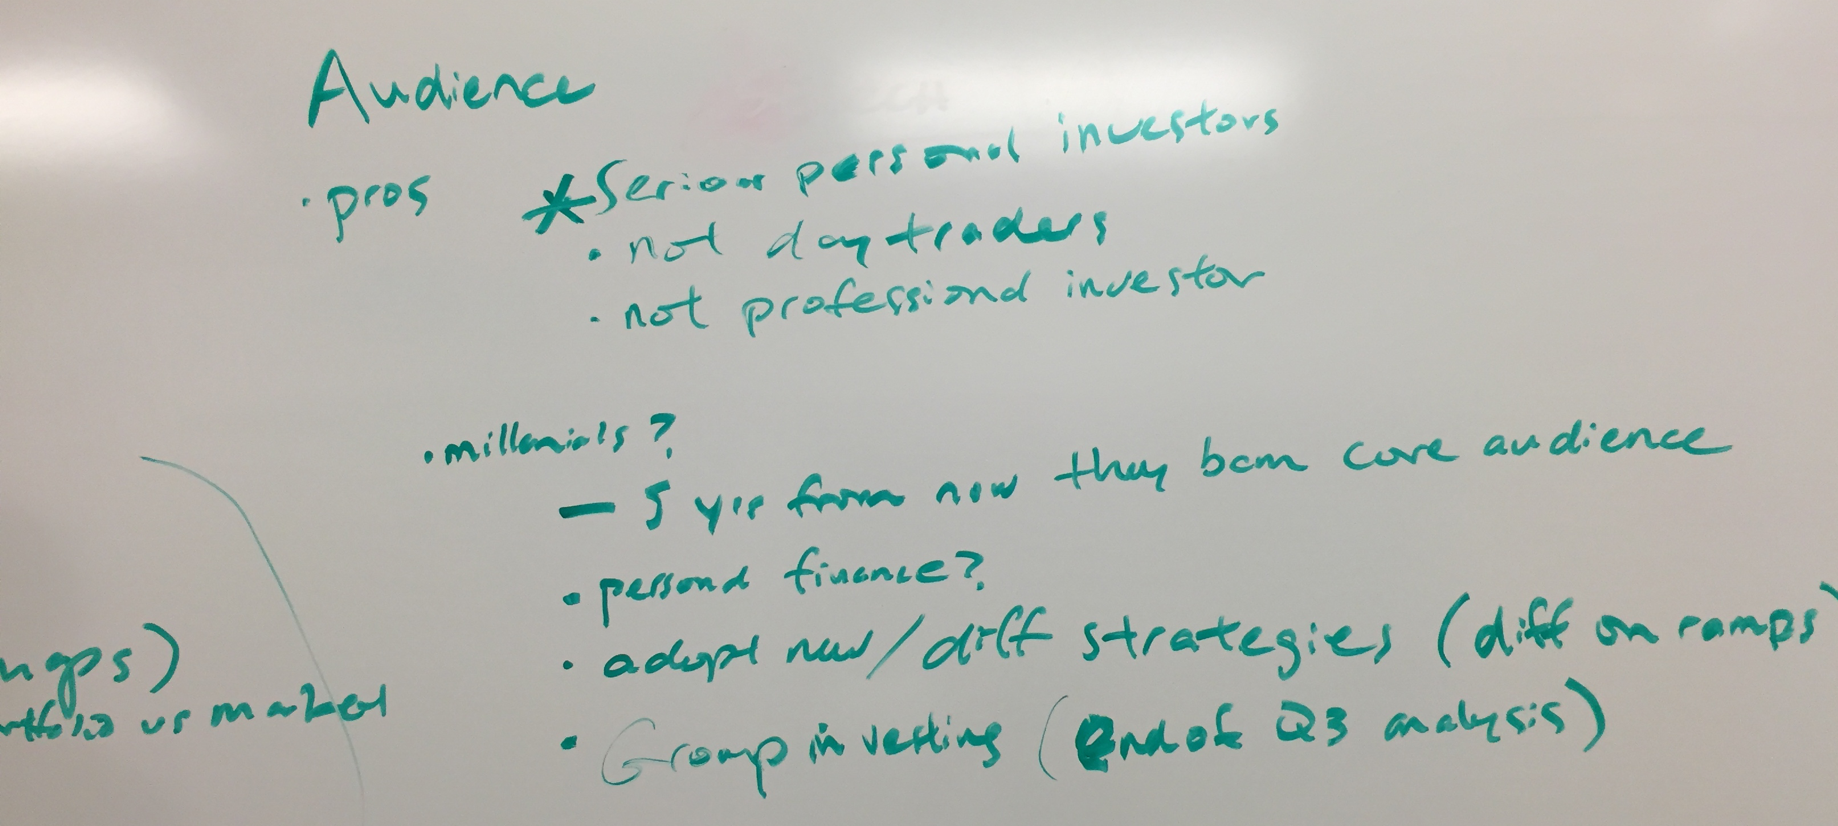 Audience
· pros
* Serious personal investors
· not day traders
· not professional investor
· millenials?
— 5 yrs from now they bcm core audience
· personal finance?
· adopt new/diff strategies (diff on ramps)
· Group investing (end of Q3 analysis)
ngs)
vs market